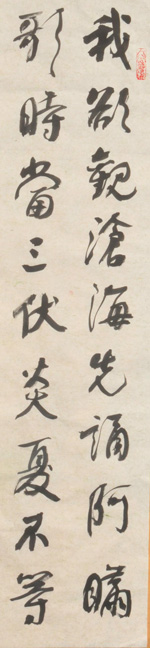 我欲觀滄海先誦阿瞞
歌時當三伏炎夏不等